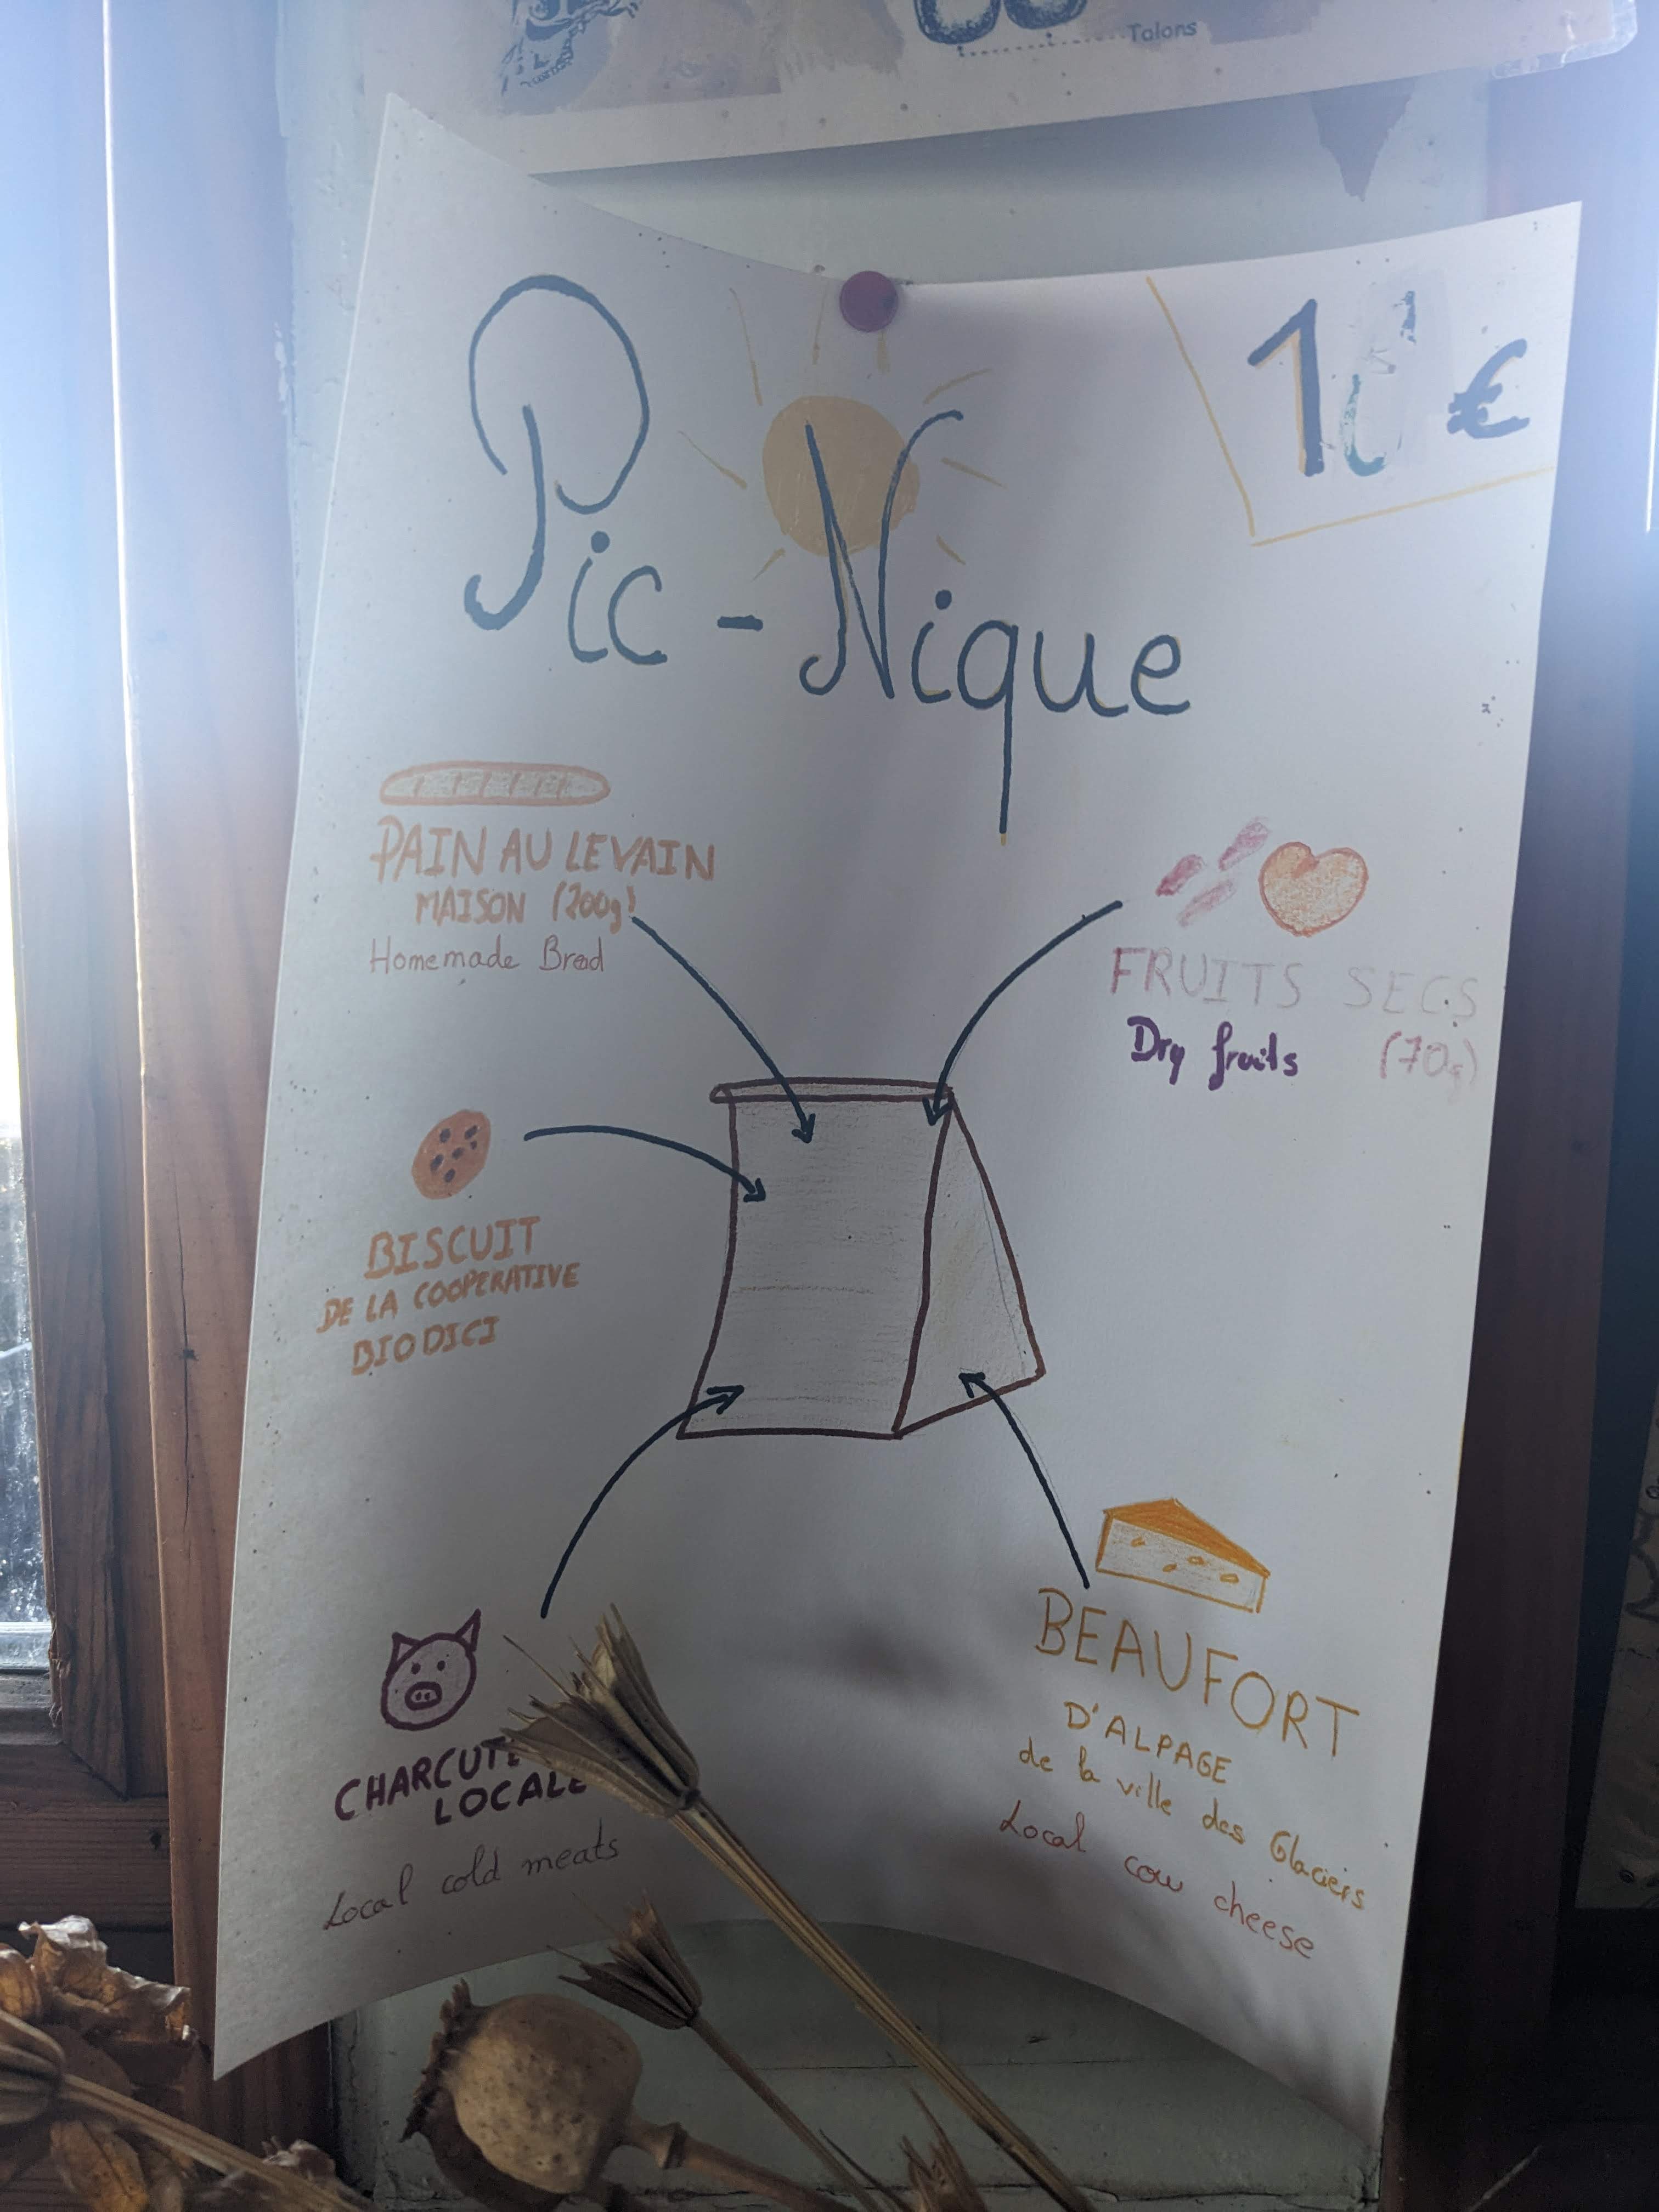 Talons
Pic-Nique
€
PAIN AU LEVAIN
MAISON (200g)
Homemade Bread
FRUITS SECS
Dry fruits (70g)
BISCUIT
DE LA COOPERATIVE
BIODICI
CHARCUTE
LOCALE
Local cold meats
BEAUFORT
D'ALPAGE
de la ville des Glaciers
Local cow cheese